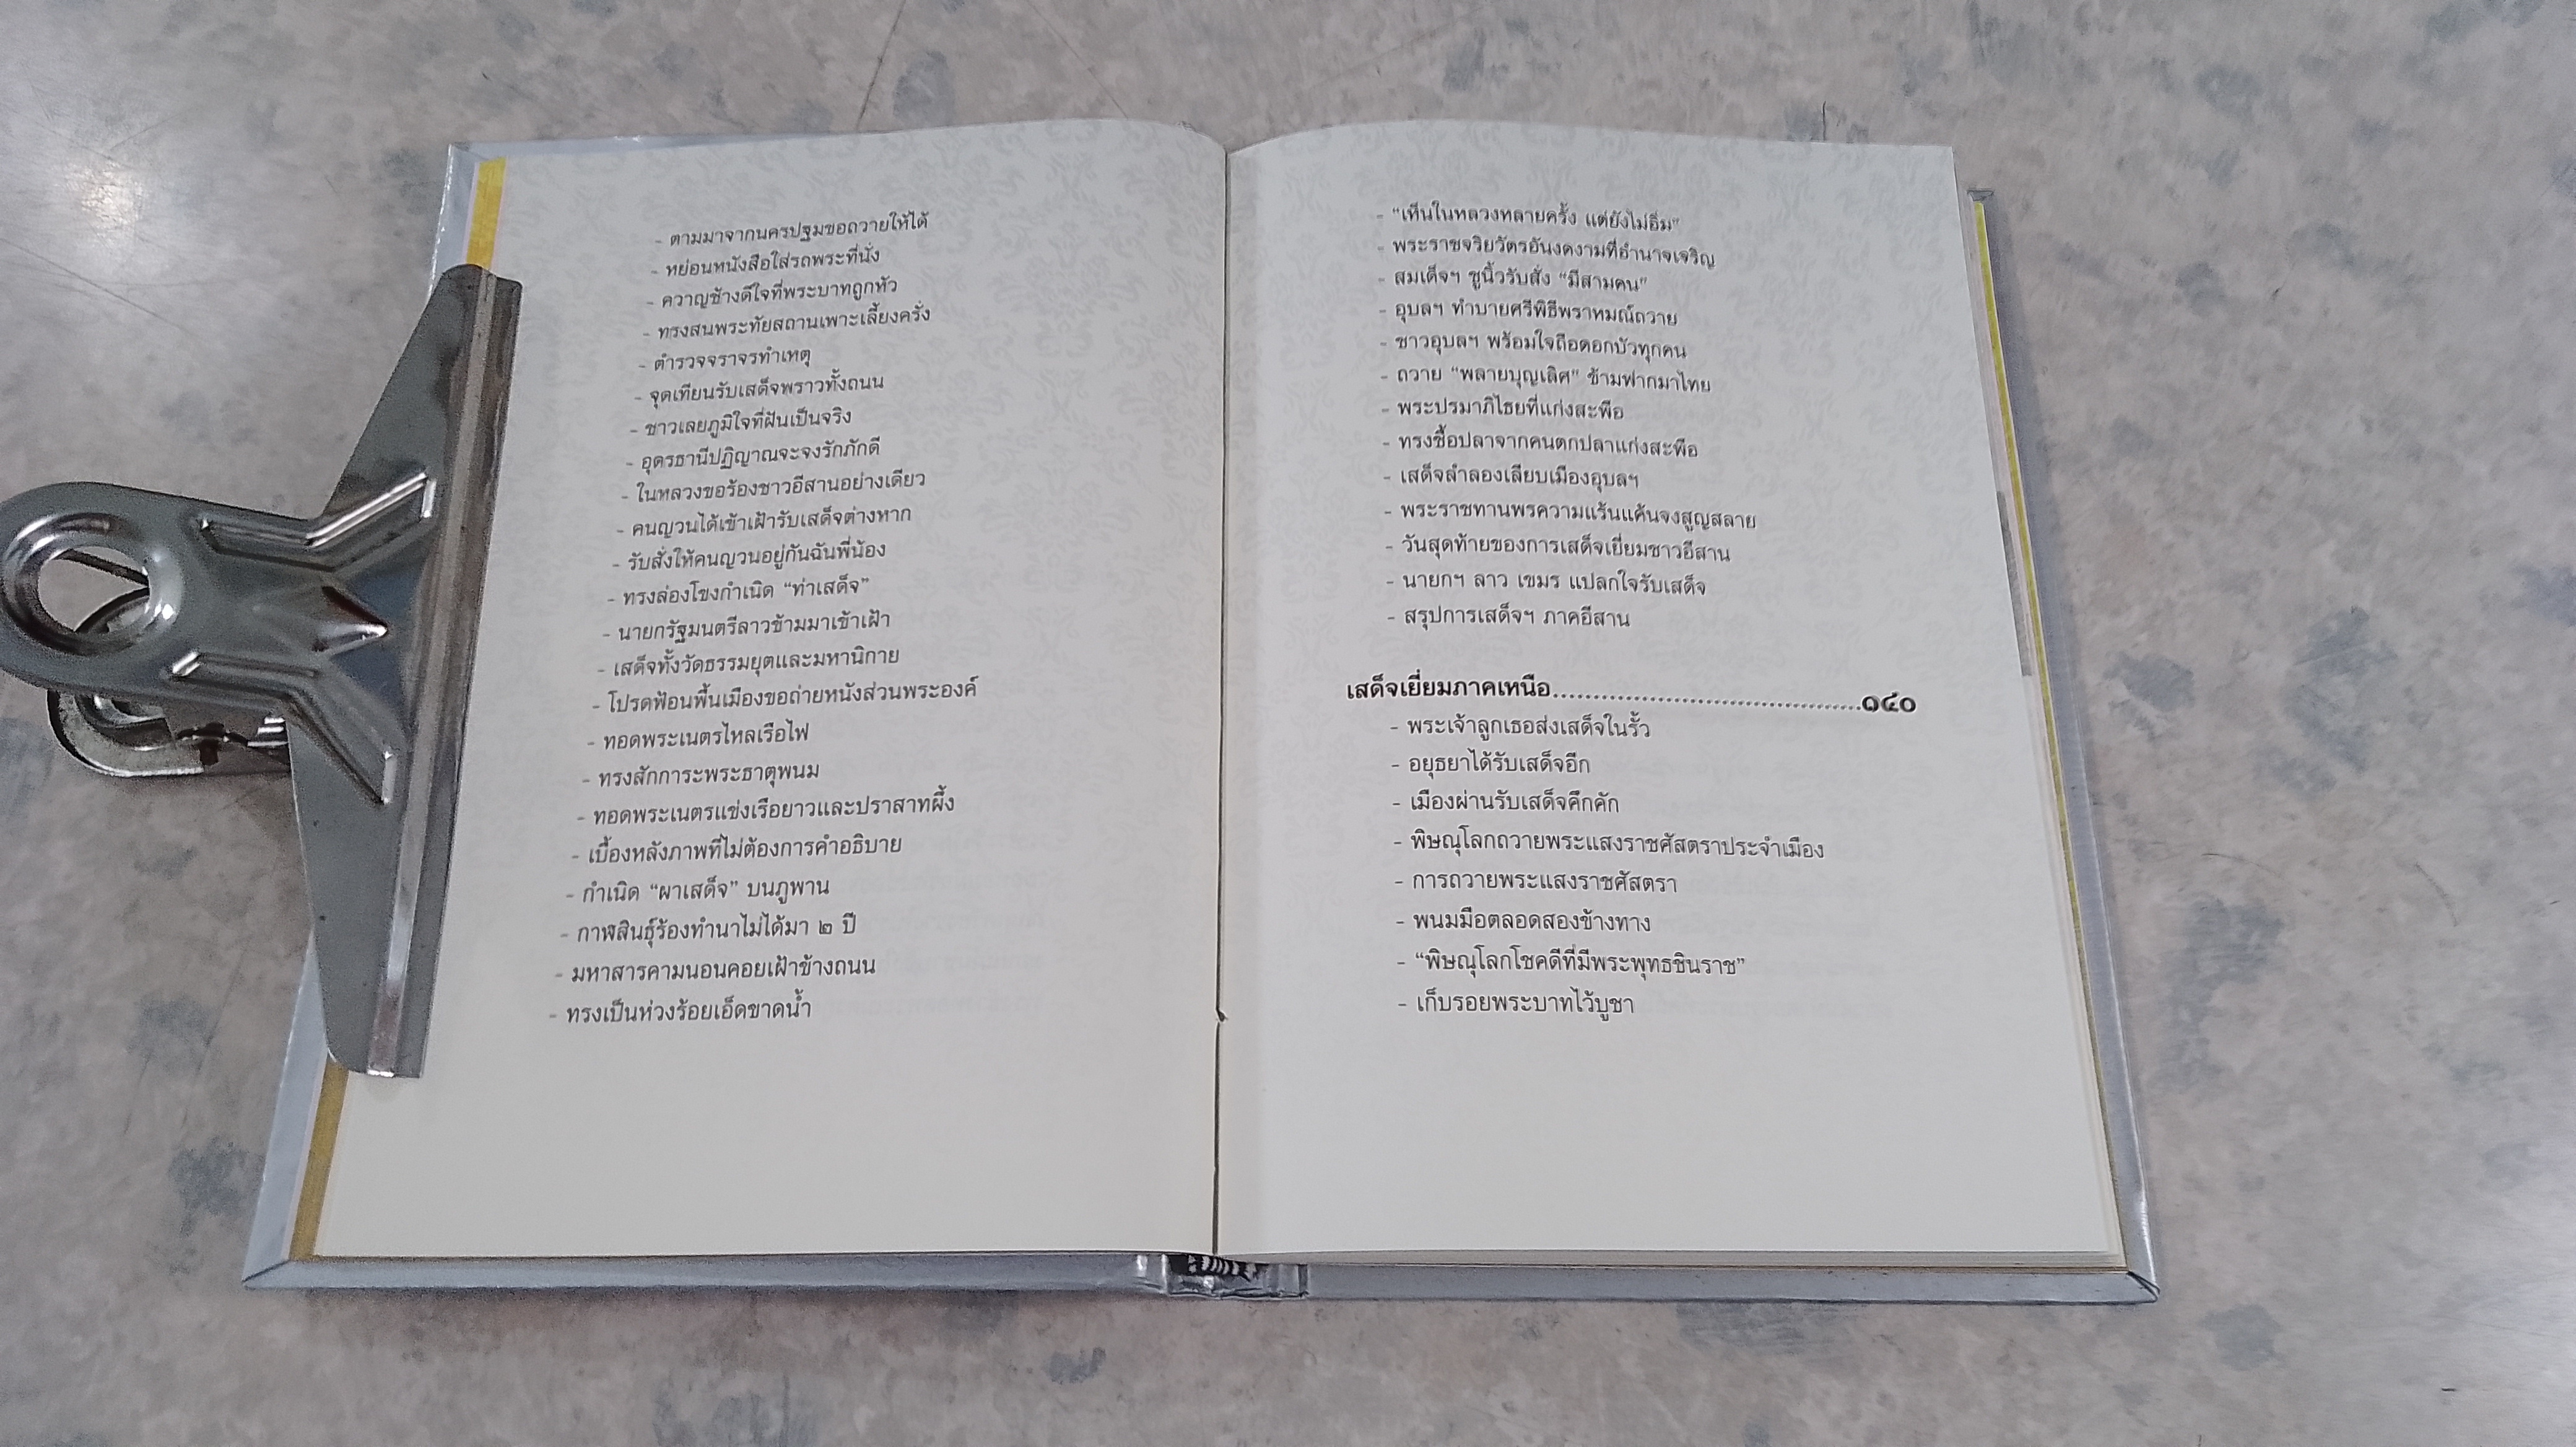 - ตามมาจากนครปฐมขอถวายให้ได้
- หย่อนหนังสือใส่รถพระที่นั่ง
- ควาญช้างดีใจที่พระบาทถูกหัว
- ทรงสนพระทัยสถานเพาะเลี้ยงครั่ง
- ตำรวจจราจรทำเหตุ
- จุดเทียนรับเสด็จพราวทั้งถนน
- ชาวเลยภูมิใจที่ฝันเป็นจริง
- อุดรธานีปฏิญาณจะจงรักภักดี
- ในหลวงขอร้องชาวอีสานอย่างเดียว
- คนญวนได้เข้าเฝ้ารับเสด็จต่างหาก
- รับสั่งให้คนญวนอยู่กันฉันพี่น้อง
- ทรงล่องโขงกำเนิด “ท่าเสด็จ”
- นายกรัฐมนตรีลาวข้ามมาเข้าเฝ้า
- เสด็จทั้งวัดธรรมยุตและมหานิกาย
- โปรดฟ้อนพื้นเมืองขอถ่ายหนังส่วนพระองค์
- ทอดพระเนตรไหลเรือไฟ
- ทรงสักการะพระธาตุพนม
- ทอดพระเนตรแข่งเรือยาวและปราสาทผึ้ง
- เบื้องหลังภาพที่ไม่ต้องการคำอธิบาย
- กำเนิด “ผาเสด็จ” บนภูพาน
- กาฬสินธุ์ร้องทำนาไม่ได้มา ๒ ปี
- มหาสารคามนอนคอยเฝ้าข้างถนน
- ทรงเป็นห่วงร้อยเอ็ดขาดน้ำ
- “เห็นในหลวงหลายครั้ง แต่ยังไม่อิ่ม”
- พระราชจริยวัตรอันงดงามที่อำนาจเจริญ
- สมเด็จฯ ชูนิ้วรับสั่ง “มีสามคน”
- อุบลฯ ทำบายศรีพิธีพราหมณ์ถวาย
- ชาวอุบลฯ พร้อมใจถือดอกบัวทุกคน
- ถวาย “พลายบุญเลิศ” ข้ามฟากมาไทย
- พระปรมาภิไธยที่แก่งสะพือ
- ทรงซื้อปลาจากคนตกปลาแก่งสะพือ
- เสด็จลำลองเลียบเมืองอุบลฯ
- พระราชทานพรความแร้นแค้นจงสูญสลาย
- วันสุดท้ายของการเสด็จเยี่ยมชาวอีสาน
- นายกฯ ลาว เขมร แปลกใจรับเสด็จ
- สรุปการเสด็จฯ ภาคอีสาน
เสด็จเยี่ยมภาคเหนือ......................................................๑๔๐
- พระเจ้าลูกเธอส่งเสด็จในรั้ว
- อยุธยาได้รับเสด็จอีก
- เมืองผ่านรับเสด็จคึกคัก
- พิษณุโลกถวายพระแสงราชศัสตราประจำเมือง
- การถวายพระแสงราชศัสตรา
- พนมมือตลอดสองข้างทาง
- “พิษณุโลกโชคดีที่มีพระพุทธชินราช”
- เก็บรอยพระบาทไว้บูชา